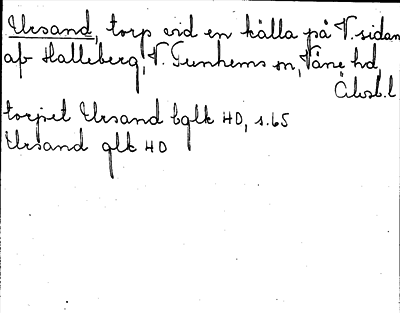 Ursand, torp vid en källa på V. sidan
af Halleberg, V. Tunhems sn, Väne hd,
Älvsb. l
torpet Ursand bglk HD, s. 65
Ursand glk HD